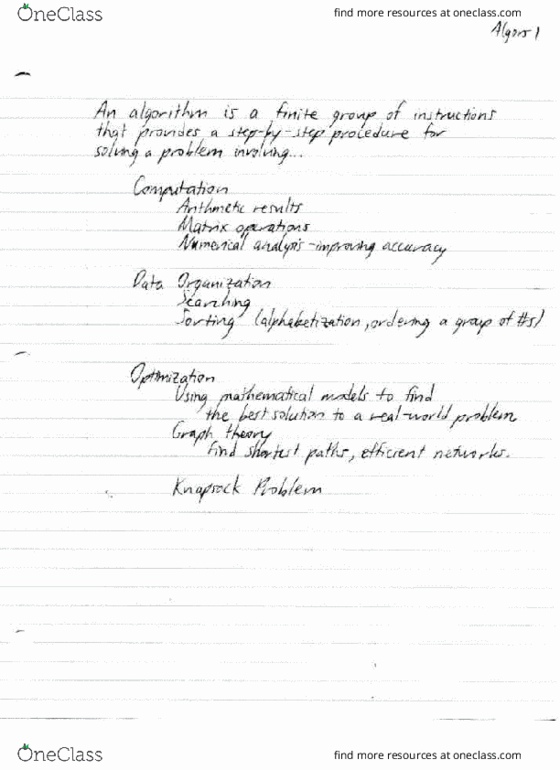 OneClass
find more resources at oneclass.com
Algors 1
An algorithm is a finite group of instructions
that provides a step-by-step procedure for
solving a problem involving...
Computation
Arithmetic results
Matrix operations
Numerical analysis - improving accuracy
Data Organization
Searching
Sorting (alphabetization, ordering a group of #s)
Optimization
Using mathematical models to find
the best solution to a real-world problem
Graph theory
find shortest paths, efficient networks.
Knapsack Problem
OneClass
find more resources at oneclass.com